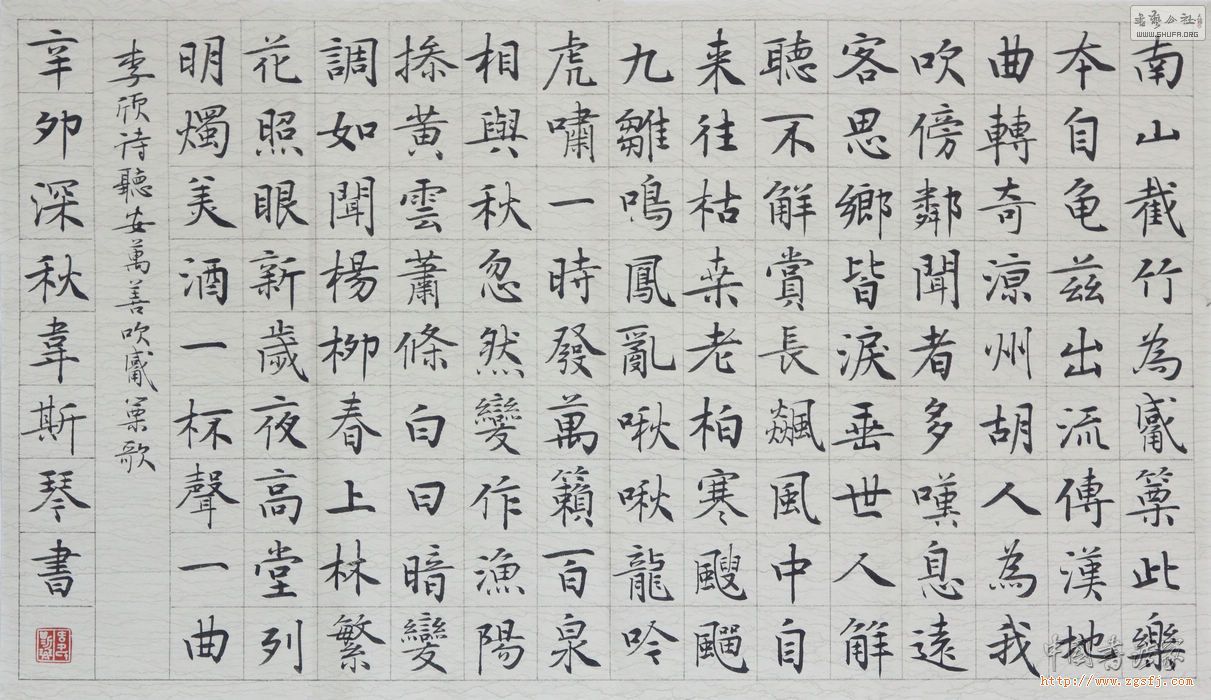 南山截竹為觱篥此樂
本自龜茲出流傳漢地
曲轉奇涼州胡人為我
吹傍鄰聞者多嘆息遠
客思鄉皆淚垂世人解
聽不解賞長飆風中自
来往枯桒老柏寒颼飀
九雛鳴鳳亂啾啾龍吟
虎嘯一時發萬籟百泉
相與秋忽然變作漁陽
摻黃雲蕭條白日暗變
調如聞楊柳春上林繁
花照眼新歲夜高堂列
明燭美酒一杯聲一曲
李頎诗聽安萬善吹觱篥歌
辛卯深秋韋斯琴書
書藝公社
WWW.SHUFA.ORG
http://www.zgsfj.com